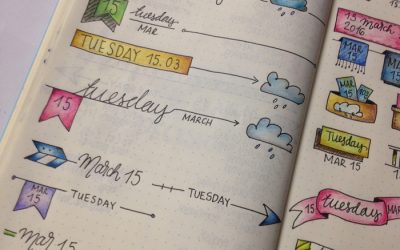 15 tuesday
MAR
TUESDAY 15.03
15 tuesday
MARCH
March 15
TUESDAY
MAR
15
TUESDAY
mar 15
13 march
2016
MAR
15
MAR
15
Tuesday
MAR 15
15 tuesday MAR